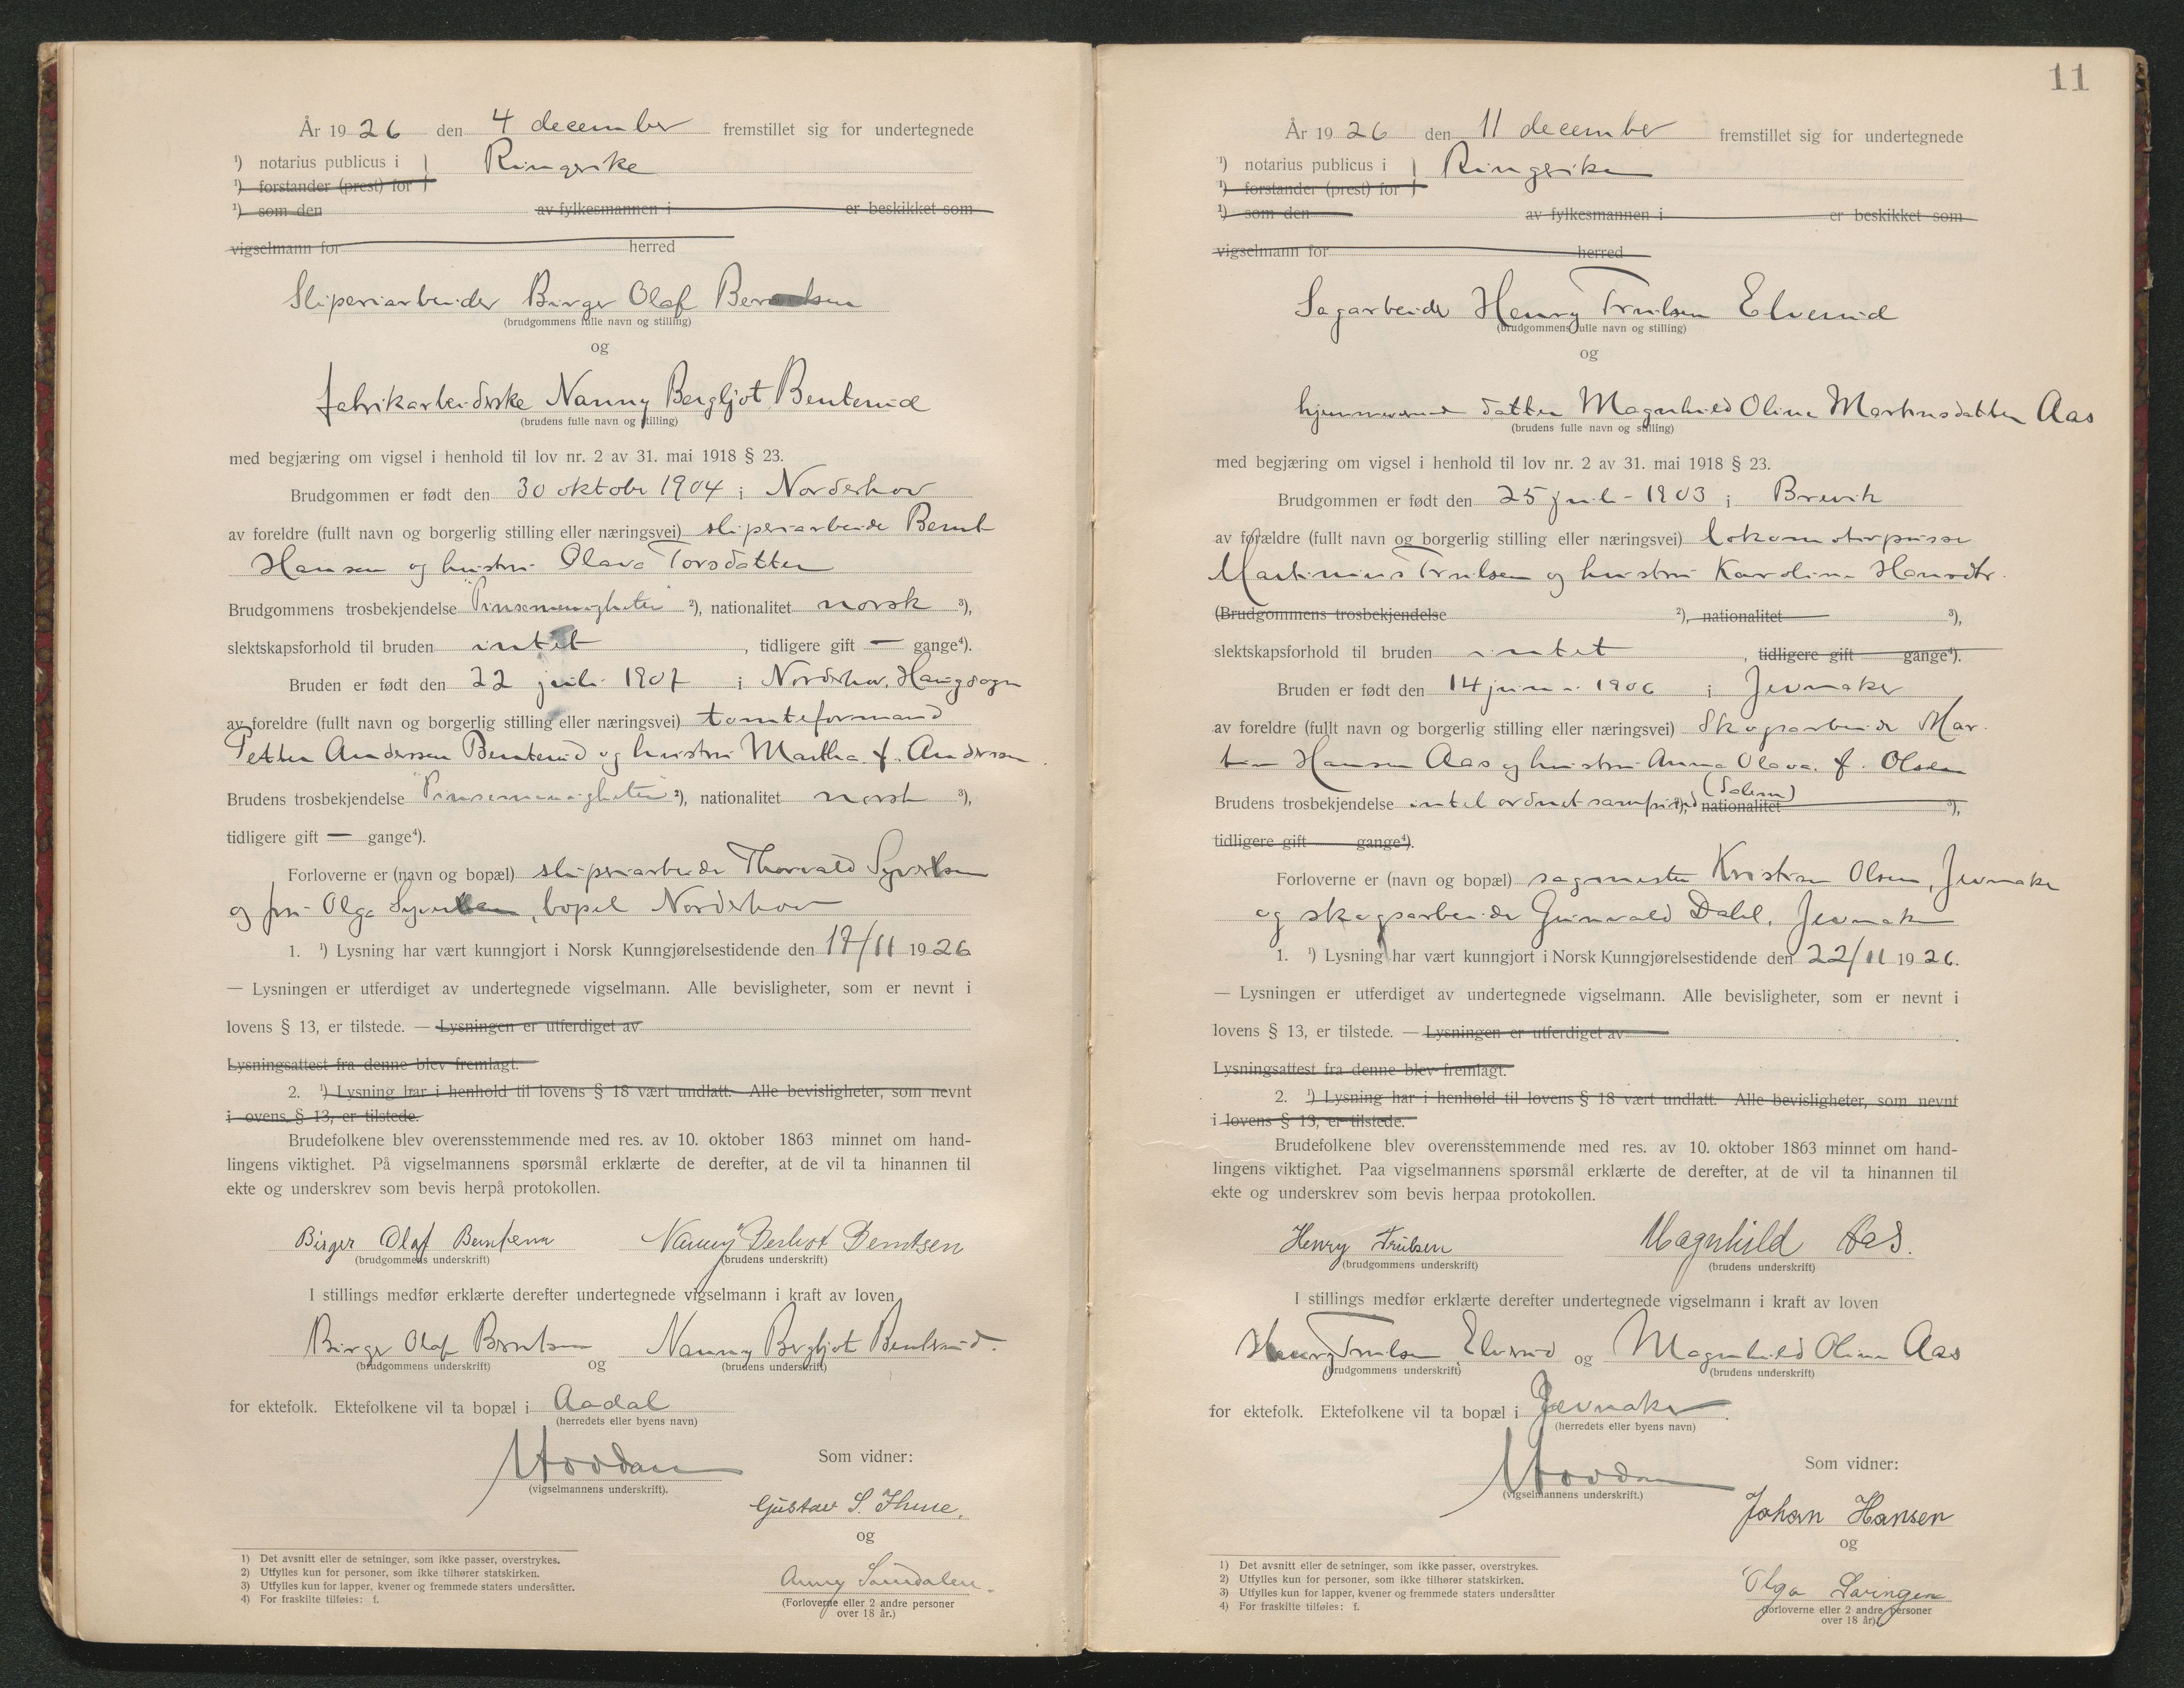 År 1926 den 4 december fremstillet sig for undertegnede
¹) notarius publicus i } Ringerike
¹) forstander (prest) for }
¹) som den av fylkesmannen i er beskikket som
vigselmann for herred
Sliperiarbeider Birger Olaf Berntsen
(brudgommens fulle navn og stilling)
og
fabrikarbeiderske Nanny Bergljot Benterud
(brudens fulle navn og stilling)
med begjæring om vigsel i henhold til lov nr. 2 av 31. mai 1918 § 23.
Brudgommen er født den 30 oktober 1904 i Norderhov
av foreldre (fullt navn og borgerlig stilling eller næringsvei) sliperiarbeider Bernt
Hansen og hustru Olava Torsdatter
Brudgommens trosbekjendelse "Pinsemenigheten" ²), nationalitet norsk ³),
slektskapsforhold til bruden intet, tidligere gift — gange⁴).
Bruden er født den 22 juli 1907 i Norderhov, Haugsogn
av foreldre (fullt navn og borgerlig stilling eller næringsvei) tomteformand
Petter Andersen Benterud og hustru Martha f. Andersen
Brudens trosbekjendelse "Pinsemenigheten" ²), nationalitet norsk ³),
tidligere gift — gange⁴).
Forloverne er (navn og bopæl) sliperiarbeider Thorvald Syvertsen
og fru Olga Syvertsen, bopel Norderhov
1. ¹) Lysning har vært kunngjort i Norsk Kunngjørelsestidende den 17/11 1926
— Lysningen er utferdiget av undertegnede vigselmann. Alle bevisligheter, som er nevnt i
lovens § 13, er tilstede. — Lysningen er utferdiget av
Lysningsattest fra denne blev fremlagt.
2. ¹) Lysning har i henhold til lovens § 18 vært undlatt. Alle bevisligheter, som nevnt
i ovens § 13, er tilstede.
Brudefolkene blev overensstemmende med res. av 10. oktober 1863 minnet om hand-
lingens viktighet. På vigselmannens spørsmål erklærte de derefter, at de vil ta hinannen til
ekte og underskrev som bevis herpå protokollen.
Birger Olaf Berntsen Nanny Berliot Berntsen
(brudgommens underskrift) (brudens underskrift)
I stillings medfør erklærte derefter undertegnede vigselmann i kraft av loven
Birger Olaf Berntsen og Nanny Bergljot Benterud.
(brudgommens underskrift) (brudens underskrift)
for ektefolk. Ektefolkene vil ta bopæl i Aadal
(herredets eller byens navn)
(vigselmannens underskrift).
Som vidner:
Gustav S. Thue.
og
Anny Sandalen.
(Forloverne eller 2 andre personer
over 18 år.)
1) Det avsnitt eller de setninger, som ikke passer, overstrykes.
2) Utfylles kun for personer, som ikke tilhører statskirken.
3) Utfylles kun for lapper, kvener og fremmede staters undersåtter.
4) For fraskilte tilføies: f.
11
År 1926 den 11 december fremstillet sig for undertegnede
¹) notarius publicus i } Ringerike
¹) forstander (prest) for }
¹) som den av fylkesmannen i er beskikket som
vigselmann for herred
Sagarbeider Henry Trulsen Elverud
(brudgommens fulle navn og stilling)
og
hjemmeværende datter Magnhild Oline Martinsdatter Aas
(brudens fulle navn og stilling)
med begjæring om vigsel i henhold til lov nr. 2 av 31. mai 1918 § 23.
Brudgommen er født den 25 juli 1903 i Brevik
av forældre (fullt navn og borgerlig stilling eller næringsvei) lokomotivpusser
Martinius Trulsen og hustru Karoline Hansdtr.
(Brudgommens trosbekjendelse ²), nationalitet ³),
slektskapsforhold til bruden intet, tidligere gift gange⁴).
Bruden er født den 14 juni 1906 i Jevnaker
av foreldre (fullt navn og borgerlig stilling eller næringsvei) Skogsarbeider Mar-
tin Hansen Aas og hustru Anna Olava f. Olsen
Brudens trosbekjendelse intet ordnet samfund (Salem) ²), nationalitet ³),
tidligere gift gange⁴).
Forloverne er (navn og bopæl) sagmester Kristian Olsen, Jevnaker
og skogsarbeider Gunvald Dahl, Jevnaker
1. ¹) Lysning har vært kunngjort i Norsk Kunngjørelsestidende den 22/11 1926.
— Lysningen er utferdiget av undertegnede vigselmann. Alle bevisligheter, som er nevnt i
lovens § 13, er tilstede. — Lysningen er utferdiget av
Lysningsattest fra denne blev fremlagt.
2. ¹) Lysning har i henhold til lovens § 18 vært undlatt. Alle bevisligheter, som nevnt
i lovens § 13, er tilstede.
Brudefolkene blev overensstemmende med res. av 10. oktober 1863 minnet om hand-
lingens viktighet. Paa vigselmannens spørsmål erklærte de derefter, at de vil ta hinannen til
ekte og underskrev som bevis herpaa protokollen.
Henry Trulsen Magnhild Aas.
(brudgommens underskrift) (brudens underskrift)
I stillings medfør erklærte derefter undertegnede vigselmann i kraft av loven
Henry Trulsen Elverud og Magnhild Oline Aas
(brudgommens underskrift) (brudens underskrift)
for ektefolk. Ektefolkene vil ta bopæl i Jevnaker
(herredets eller byens navn)
(vigselmannens underskrift.)
Som vidner:
Johan Hansen
og
Olga Svingen
(forloverne eller 2 andre personer
over 18 år).
1) Det avsnitt eller de setninger, som ikke passer, overstrykes.
2) Utfylles kun for personer, som ikke tilhører statskirken.
3) Utfylles kun for lapper, kvener og fremmede staters undersåtter
4) For fraskilte tilføies: f.